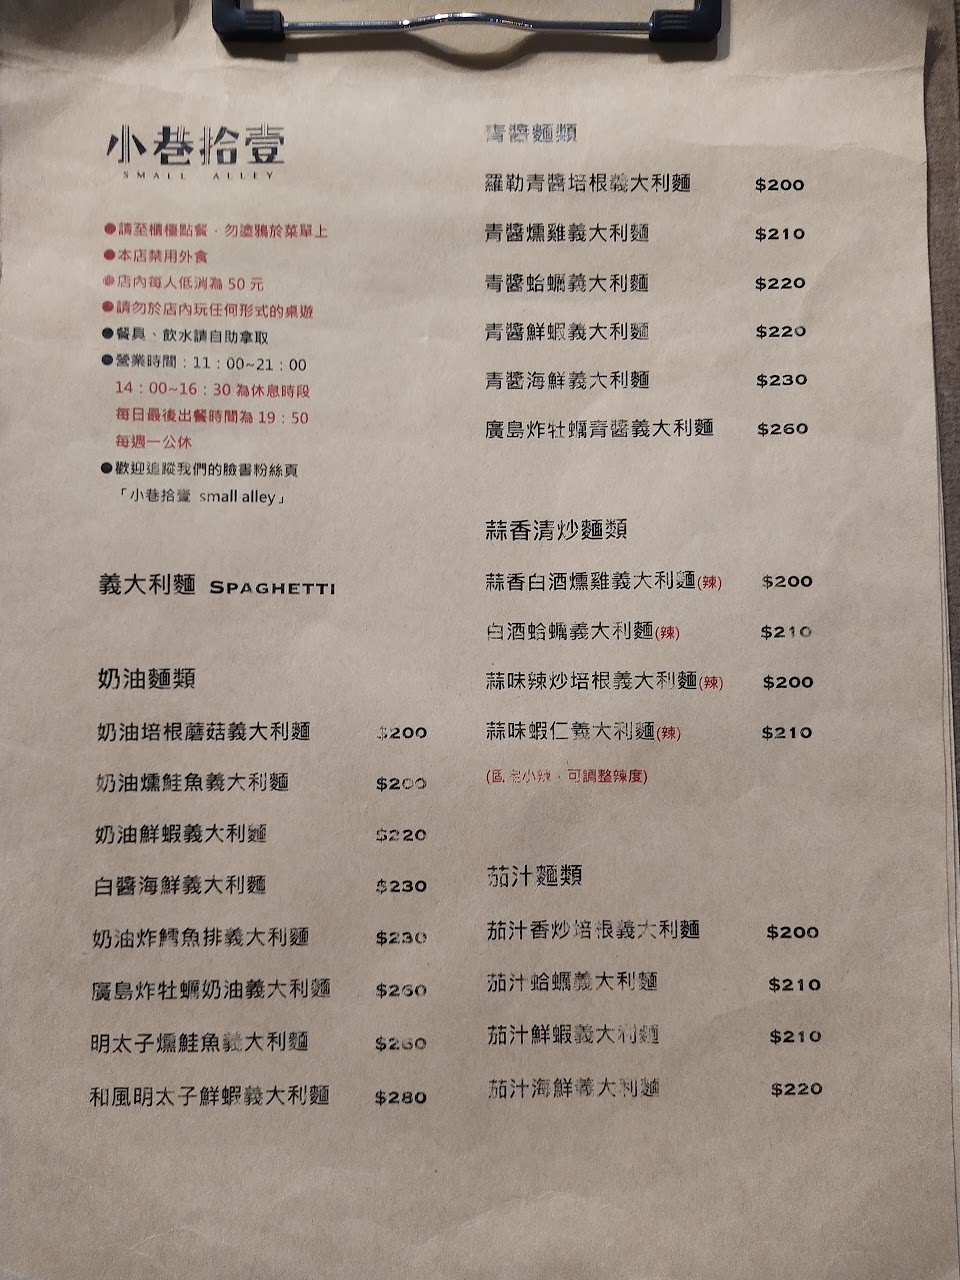 小巷拾壹
SMALL ALLEY
●請至櫃檯點餐，勿塗鴉於菜單上
●本店禁用外食
●店內每人低消為 50 元
●請勿於店內玩任何形式的桌遊
●餐具、飲水請自助拿取
●營業時間：11：00~21：00
14：00~16：30 為休息時段
每日最後出餐時間為 19：50
每週一公休
●歡迎追蹤我們的臉書粉絲頁
「小巷拾壹 small alley」
義大利麵 SPAGHETTI
奶油麵類
奶油培根蘑菇義大利麵 $200
奶油燻鮭魚義大利麵 $200
奶油鮮蝦義大利麵 $220
白醬海鮮義大利麵 $230
奶油炸鱈魚排義大利麵 $230
廣島炸牡蠣奶油義大利麵 $260
明太子燻鮭魚義大利麵 $260
和風明太子鮮蝦義大利麵 $280
青醬麵類
羅勒青醬培根義大利麵 $200
青醬燻雞義大利麵 $210
青醬蛤蠣義大利麵 $220
青醬鮮蝦義大利麵 $220
青醬海鮮義大利麵 $230
廣島炸牡蠣青醬義大利麵 $260
蒜香清炒麵類
蒜香白酒燻雞義大利麵(辣) $200
白酒蛤蠣義大利麵(辣) $210
蒜味辣炒培根義大利麵(辣) $200
蒜味蝦仁義大利麵(辣) $210
小辣，可調整辣度)
茄汁麵類
茄汁香炒培根義大利麵 $200
茄汁蛤蠣義大利麵 $210
茄汁鮮蝦義大利麵 $210
茄汁海鮮義大利麵 $220